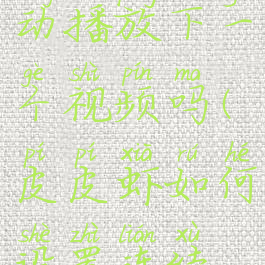 动播放下一
gè shì pín ma
个视频吗(
pí pí xiā rú hé
皮皮虾如何
shè zhì lián xù
设置连续